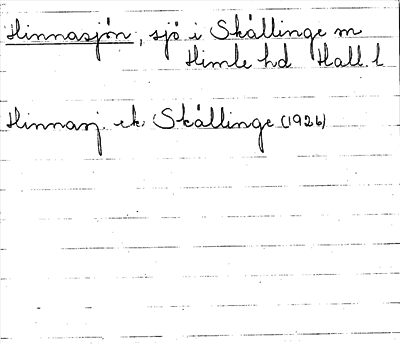 Hinnasjön, sjö i Skällinge m
Himle hd Hall. l
Hinnasj. ek. Skällinge (1926)